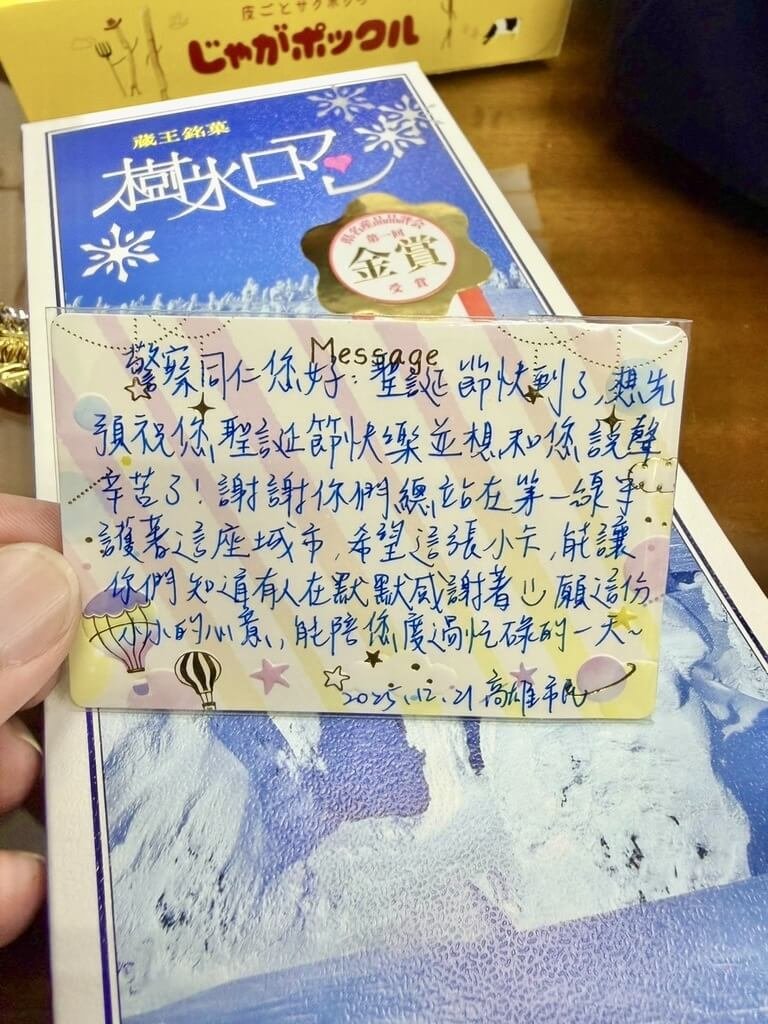 皮ごとサクポックリ
じゃがポックル
蔵王銘菓
樹氷ロマン
県名産品品評会
第一回
金賞
受賞
Message
警察同仁您好:聖誕節快到了,想先
預祝您聖誕節快樂並想和您說聲
辛苦了!謝謝你們總站在第一線守
護著這座城市,希望這張小卡,能讓
你們知道有人在默默感謝著 願這份
小小的心意,能陪您度過忙碌的一天~
2025.12.21 高雄市民